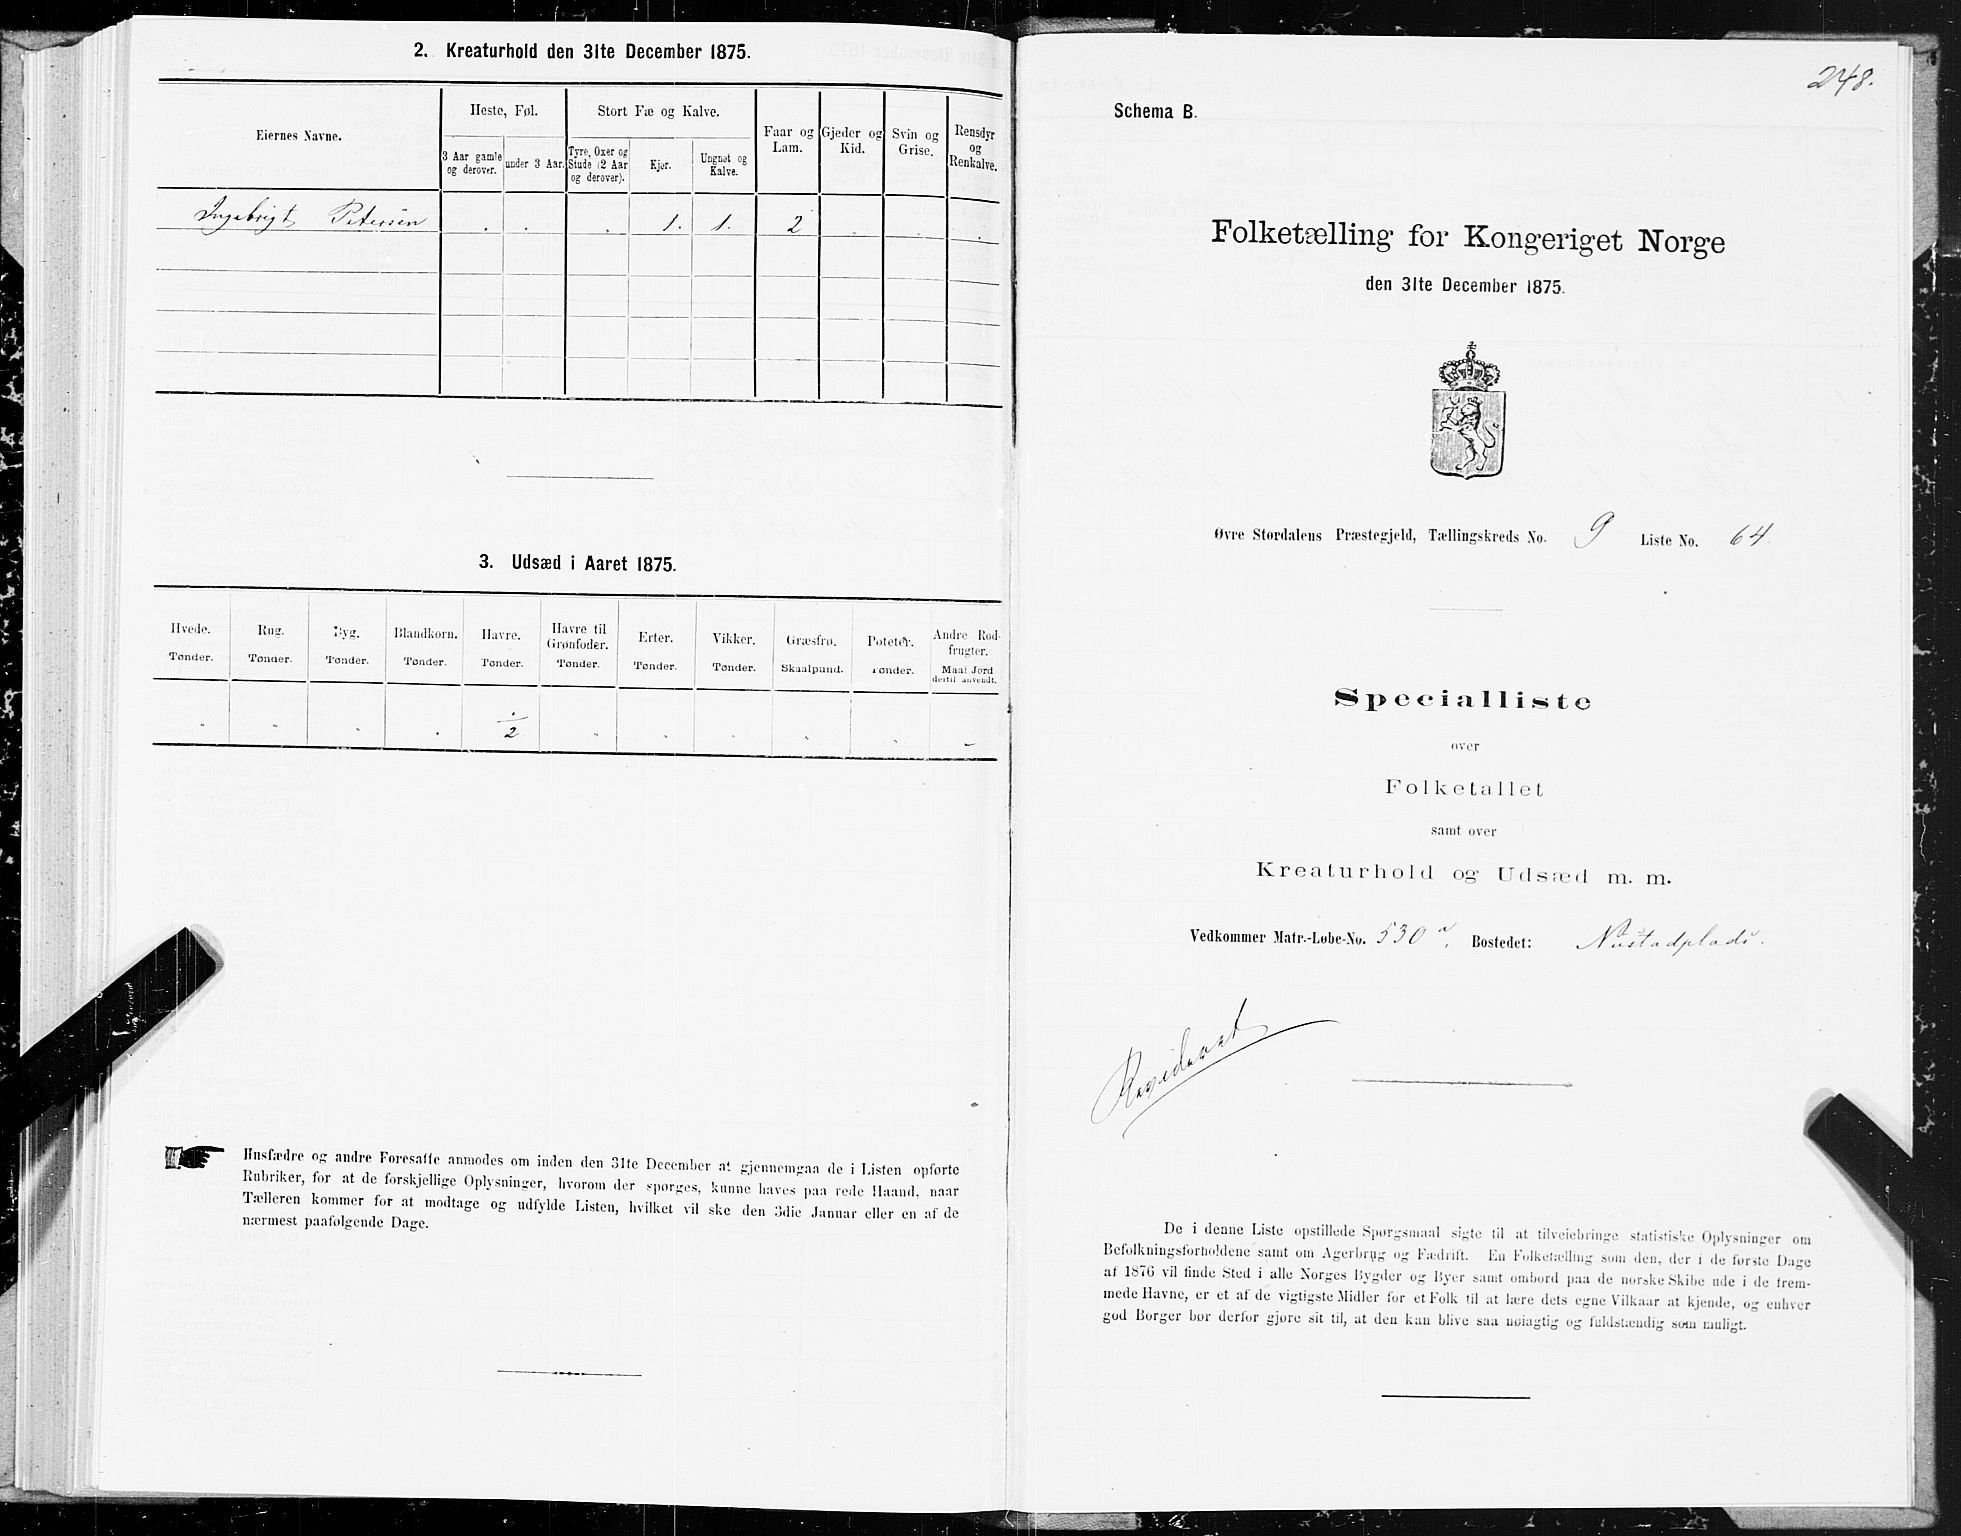 2. Kreaturhold den 31te December 1875.
Eiernes Navne.
Heste, Føl.
Stort Fæ og Kalve.
Faar og Lam.
Gjeder og Kid.
Svin og Grise.
Rensdyr og Renkalve.
3 Aar gamle og derover.
under 3 Aar.
Tyre, Oxer og Stude (2 Aar og derover).
Kjør.
Ungnøt og Kalve.
Ingebrigt Petersen . . . 1. 1. 2 . . .
3. Udsæd i Aaret 1875.
Hvede. Rug. Byg. Blandkorn. Havre. Havre til Grønfoder. Erter. Vikker. Græsfrø. Poteter. Andre Rodfrugter.
Tønder. Tønder. Tønder. Tønder. Tønder. Tønder. Tønder. Tønder. Skaalpund. Tønder. Maal Jord dertil anvendt.
" " " . ./2 " " " " " –
Husfædre og andre Foresatte anmodes om inden den 31te December at gjennemgaa de i Listen opførte
Rubriker, for at de forskjellige Oplysninger, hvorom der spørges, kunne haves paa rede Haand, naar
Tælleren kommer for at modtage og udfylde Listen, hvilket vil ske den 3die Januar eller en af de
nærmest paafølgende Dage.
248.
Schema B.
Folketælling for Kongeriget Norge
den 31te December 1875.
Øvre Stordalens Præstegjeld, Tællingskreds No. 9 Liste No. 64.
Specialliste
over
Folketallet
samt over
Kreaturhold og Udsæd m. m.
Vedkommer Matr.-Løbe-No. 530 a, Bostedet: Nustadplads.
Revideret
De i denne Liste opstillede Spørgsmaal sigte til at tilveiebringe statistiske Oplysninger om
Befolkningsforholdene samt om Agerbrug og Fædrift. En Folketælling som den, der i de første Dage
af 1876 vil finde Sted i alle Norges Bygder og Byer samt ombord paa de norske Skibe ude i de frem-
mede Havne, er et af de vigtigste Midler for et Folk til at lære dets egne Vilkaar at kjende, og enhver
god Borger bør derfor gjøre sit til, at den kan blive saa nøiagtig og fuldstændig som muligt.